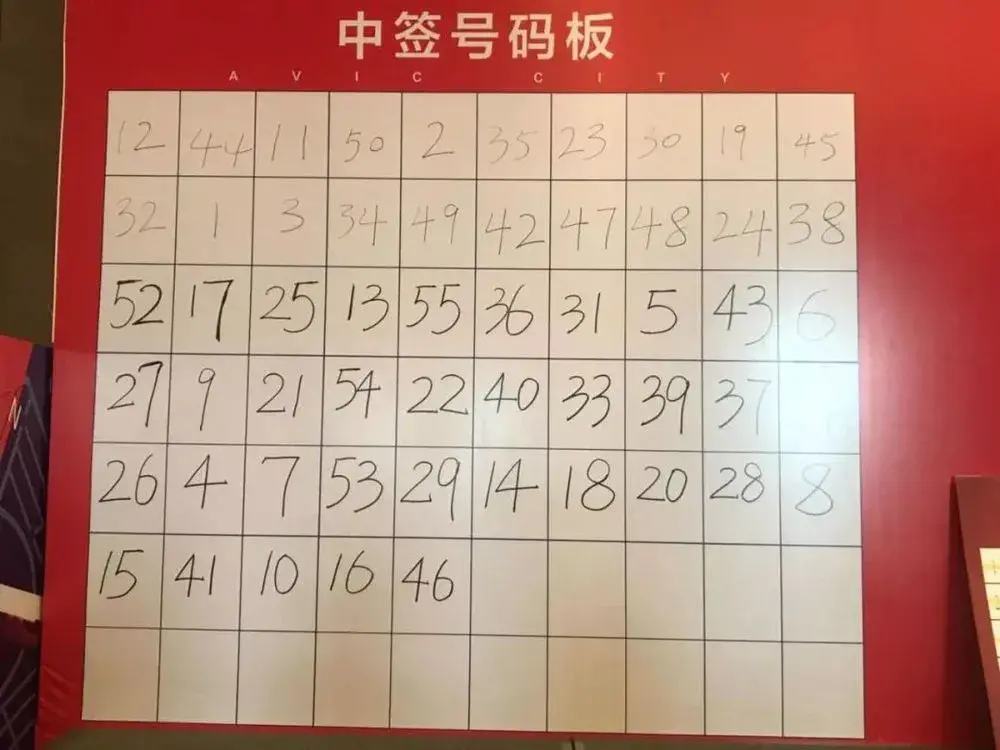 中签号码板
AVIC CITY
12 44 11 50 2 35 23 30 19 45
32 1 3 34 49 42 47 48 24 38
52 17 25 13 55 36 31 5 43 6
27 9 21 54 22 40 33 39 37
26 4 7 53 29 14 18 20 28 8
15 41 10 16 46